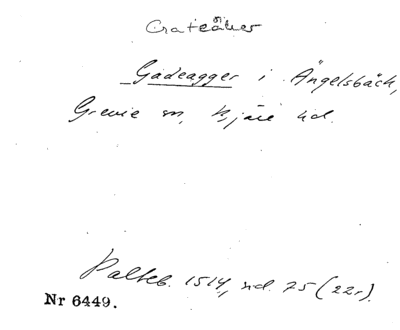 Grateåker
Gadeagger i Ängelsbäck,
Grevie sn, Bjäre hd.
Palteb. 1514, sid. 75 (22r).
Nr 6449.